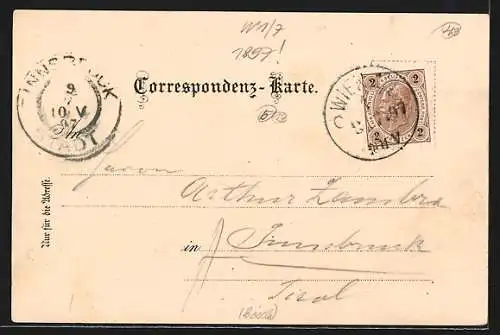 W1/7
1897!
INNSBRUCK
9
10 V
97
STADT
Correspondenz-Karte.
WIEN
97
2 2
2 2
An
Herrn
Arthur Zambra
in Innsbruck
Tirol
Nur für die Adresse.